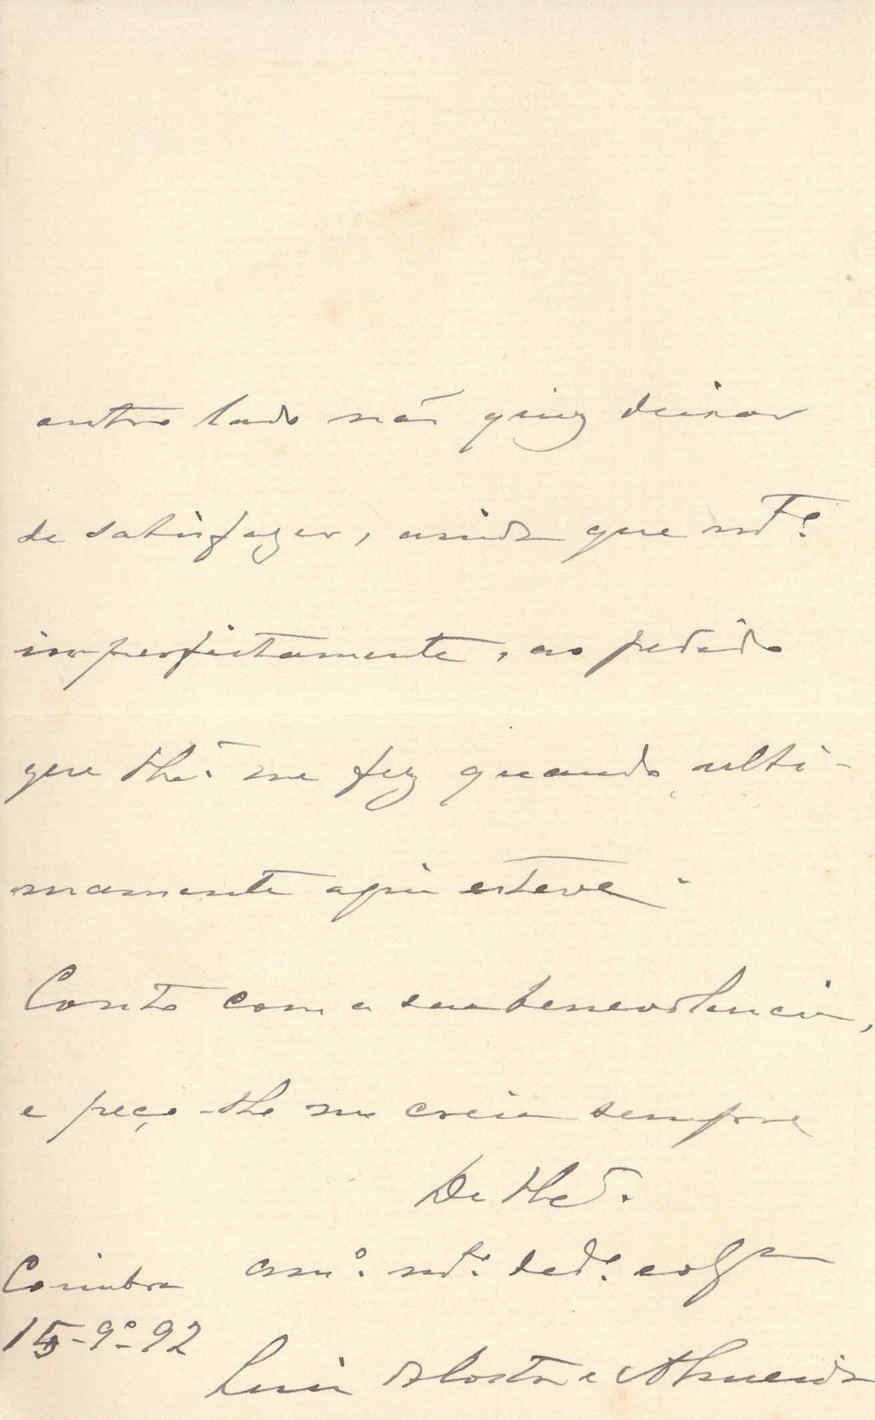 outro lado não quiz deixar
de satisfazer, ainda que mt.º
imperfeitamente, ao pedido
que me fez quando ulti-
mamente aqui esteve.
Conto com a sua benevolencia,
e peço-lhe me creia sempre
De
am.º mt.º ded.º colg.ª
Coimbra
15-9º-92
Luiz da Costa e Almeida